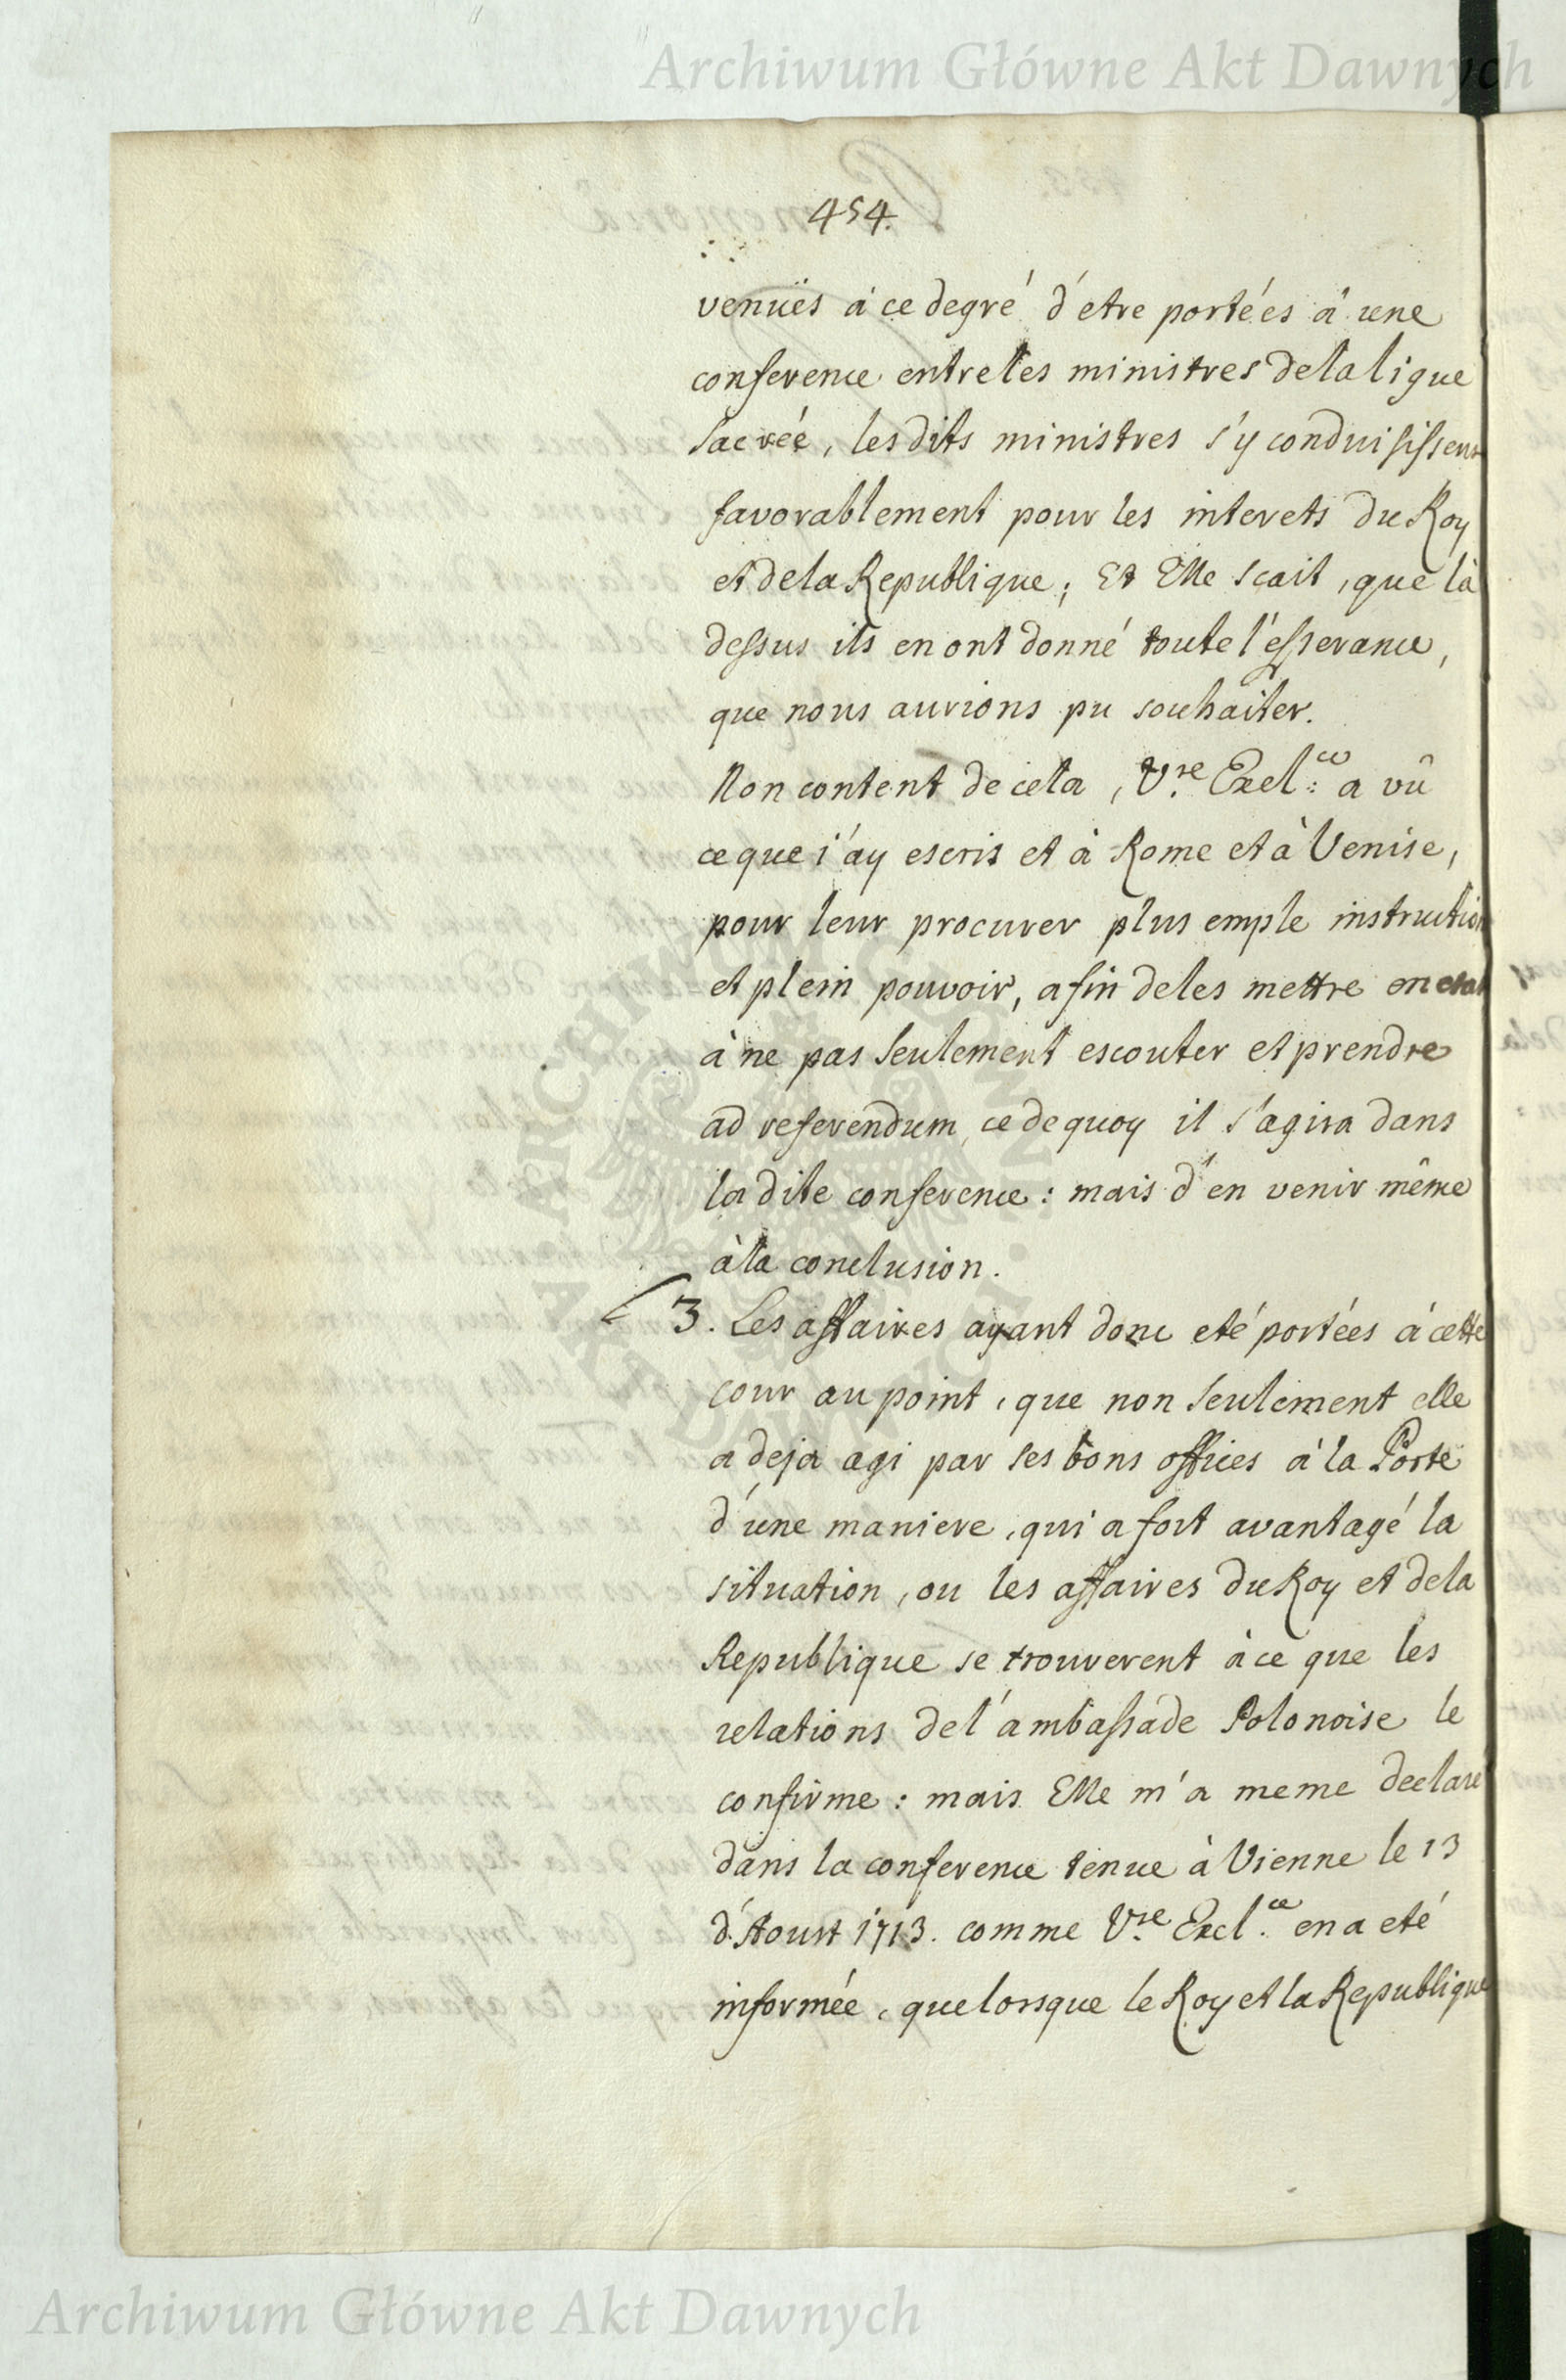 Archiwum Główne Akt Dawnych
454.
venuës à ce degré d'etre portées à une
conference entre les ministres de la ligue
sacrée, les dits ministres s'y conduisissent
favorablement pour les interets du Roy
et de la Republique; Et Elle scait, que là
dessus ils en ont donné toute l'esperance,
que nous aurions pu souhaiter.
Non content de cela, V.re Exel:ce a vû
ce que i'ay escris et à Rome et à Venise,
pour leur procurer plus emple instruction
et plein pouvoir, afin de les mettre en etat
à ne pas seulement escouter et prendre
ad referendum, ce de quoy il s'agira dans
la dite conference: mais d'en venir même
à la conclusion.
3. Les affaires ayant donc eté portées à cette
cour au point, que non seulement elle
a deja agi par ses bons offices à la Porte
d'une maniere, qui a fort avantagé la
situation, ou les affaires du Roy et de la
Republique se trouverent à ce que les
relations de l'ambassade Polonoise le
confirme: mais Elle m'a meme declaré
dans la conference tenue à Vienne le 13
d'Aoust 1713. comme V.re Excl.ce en a eté
informée, que lorsque le Roy et la Republique
ARCHIWUM GŁÓWNE
AKT DAWNYCH
Archiwum Główne Akt Dawnych